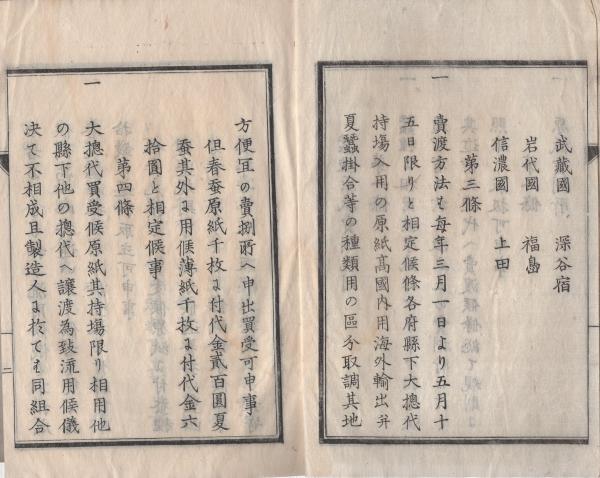 武藏國　深谷宿
岩代國　福島
信濃國　上田
第三條
一
賣渡方法も每年三月一日より五月十
五日限りと相定候條各府縣下大摠代
持塲入用の原紙高國內用海外輸出并
夏蠶掛合等の種類用の區分取調其地
方便冝の賣捌所へ申出買受可申事
但春蚕原紙千枚ニ付代金貳百圓夏
蚕其外ニ用候薄紙千枚ニ付代金六
拾圓と相定候事
第四條
一
大摠代買受候原紙其持塲限り相用他
の縣下他の摠代へ讓渡為致流用候儀
決て不相成且製造人ニ於ても同組合
二